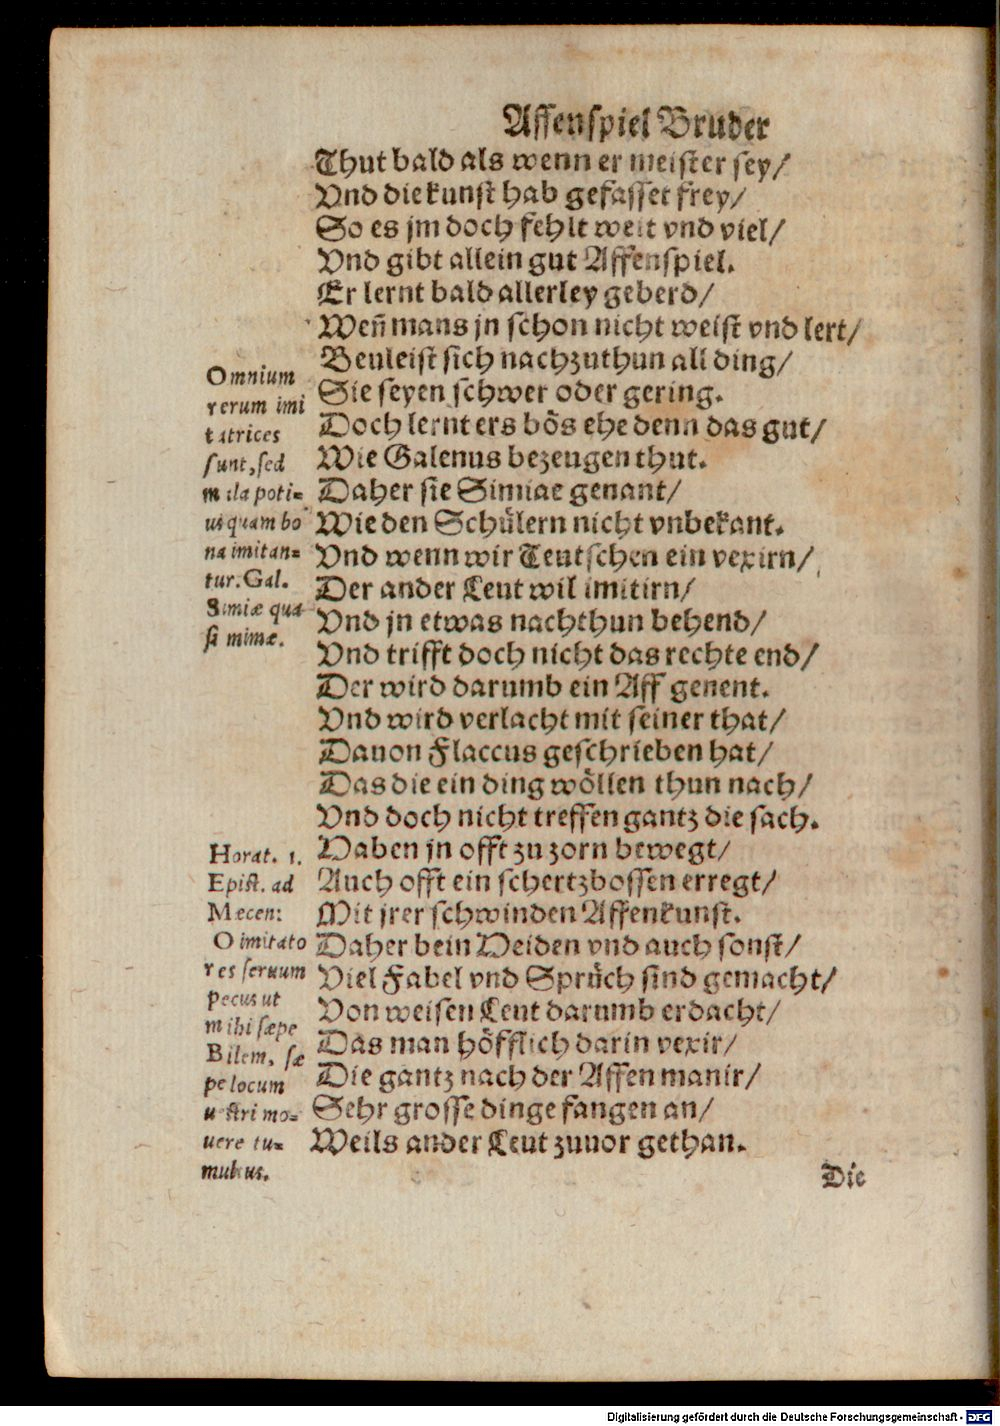 Affenspiel Bruder
Thut bald als wenn er meister sey/
Vnd die kunst hab gefasset frey/
So es jm doch fehlt weit vnd viel/
Vnd gibt allein gut Affenspiel.
Er lernt bald allerley geberd/
Weñ mans jn schon nicht weist vnd lert/
Beuleist sich nachzuthun all ding/
Sie seyen schwer oder gering.
Doch lernt ers bös ehe denn das gut/
Wie Galenus bezeugen thut.
Daher sie Simiae genant/
Wie den Schülern nicht vnbekant.
Vnd wenn wir Teutschen ein vexirn/
Der ander Leut wil imitirn/
Vnd jn etwas nachthun behend/
Vnd trifft doch nicht das rechte end/
Der wird darumb ein Aff genent.
Vnd wird verlacht mit seiner that/
Dauon Flaccus geschrieben hat/
Das die ein ding wöllen thun nach/
Vnd doch nicht treffen gantz die sach.
Haben jn offt zu zorn bewegt/
Auch offt ein schertzbossen erregt/
Mit jrer schwinden Affenkunst.
Daher bein Heiden vnd auch sonst/
Viel Fabel vnd Sprüch sind gemacht/
Von weisen Leut darumb erdacht/
Das man höfflich darin vexir/
Die gantz nach der Affen manir/
Sehr grosse dinge fangen an/
Weils ander Leut zuuor gethan.
Die
Omnium
rerum imi
tatrices
sunt, sed
mala poti-
us quam bo
na imitan-
tur. Gal.
Simiæ qua
si mimæ.
Horat. 1.
Epist. ad
Mæcen:
O imitato
res seruum
pecus ut
mihi sæpe
Bilem, sæ
pe locum
uestri mo-
uere tu-
multus.
Digitalisierung gefördert durch die Deutsche Forschungsgemeinschaft - DFG